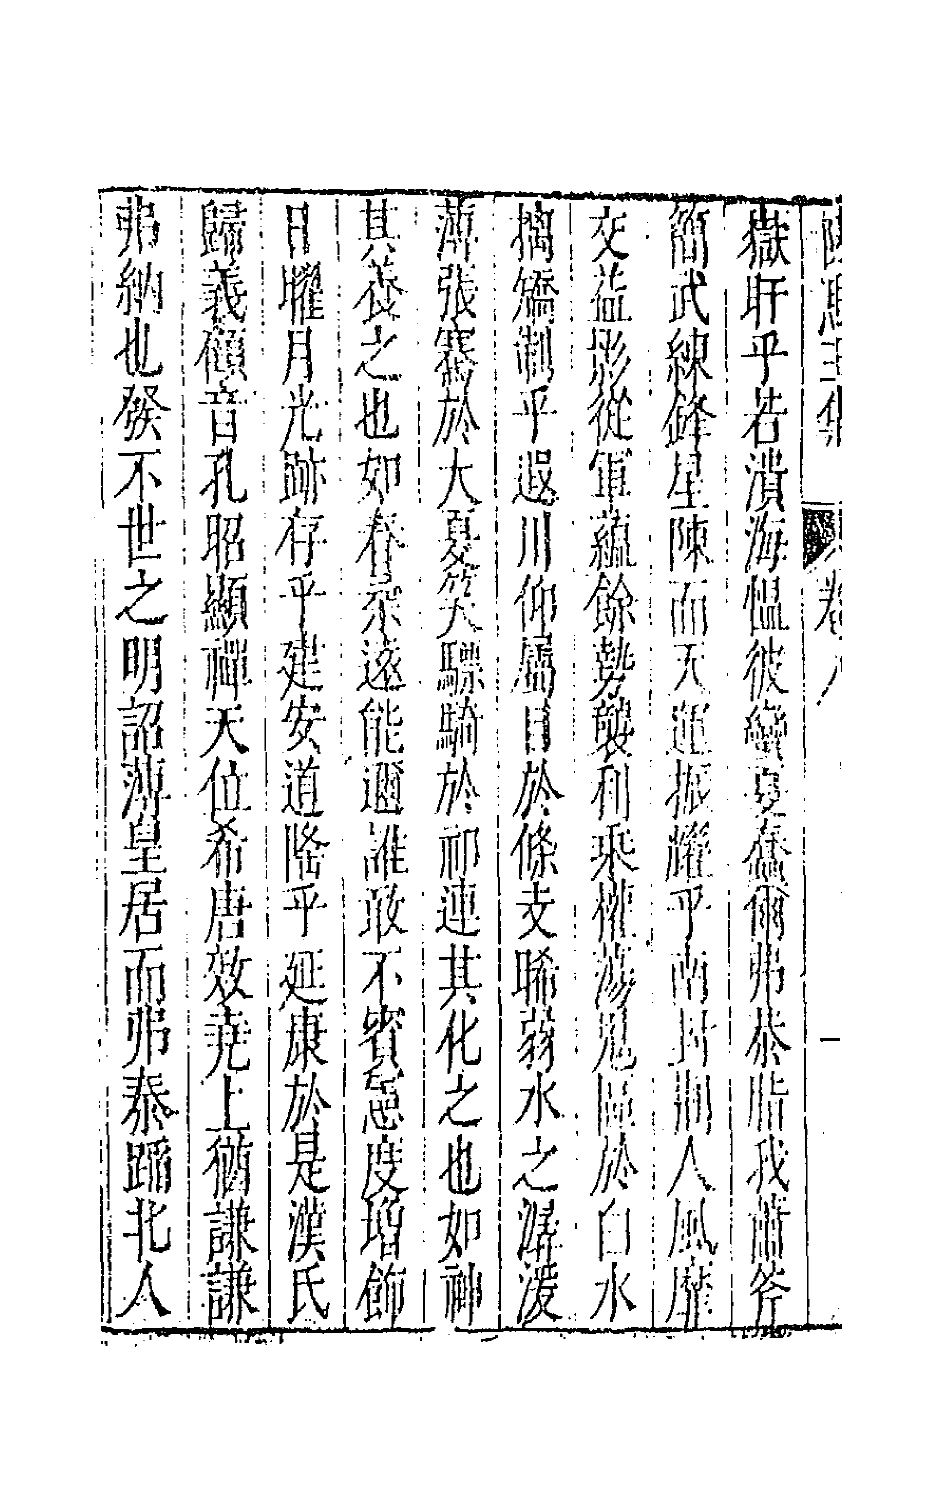 陳思王集 卷八 一
嶽旰乎若潰海愠彼蠻夏蠢爾弗恭脂我蕭斧
簡武練鋒星陳而天運振耀乎南封荆人風靡
交益影從軍蘊餘勢襲利乘權蕩鬼區於白水
擒矯制乎遐川仰屬目於條支晞弱水之潺湲
薄張騫於大夏笑驃騎於祁連其化之也如神
其養之也如春柔遠能邇誰敢不賓憲度增飾
日曜月光跡存乎建安道隆乎延康於是漢氏
歸義顧音孔昭顯禪天位希唐效堯上猶謙謙
弗納也發不世之明詔薄皇居而弗泰蹈北人